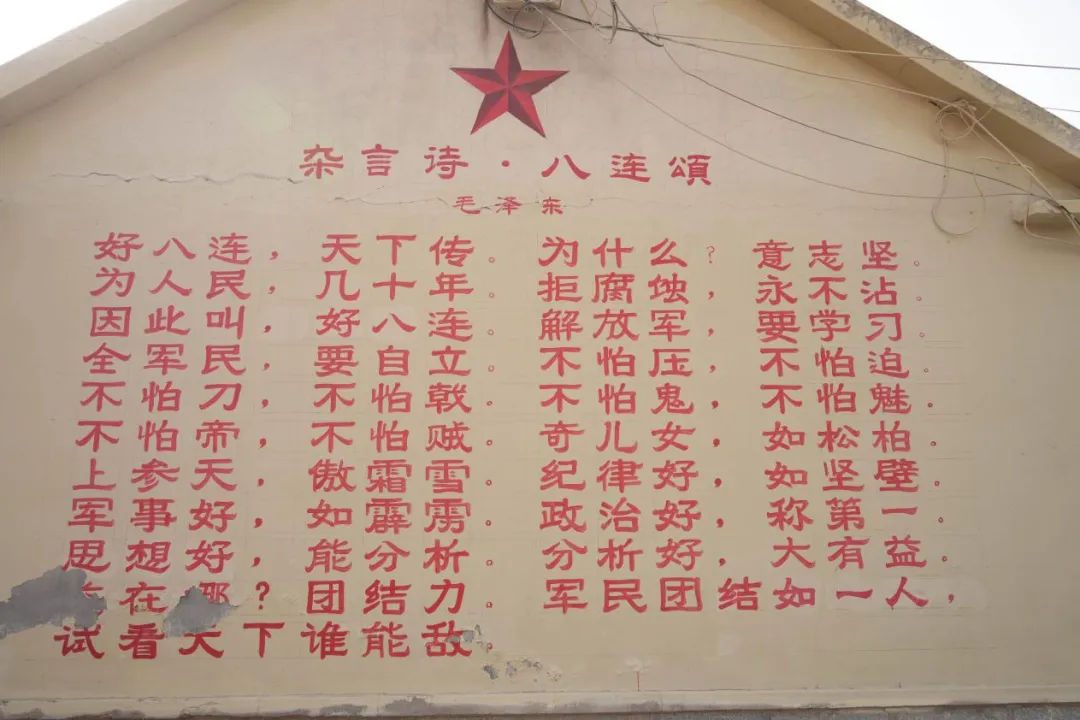 杂言诗·八连頌
毛泽东
好八连，天下传。为什么？意志坚。
为人民，几十年。拒腐蚀，永不沾。
因此叫，好八连。解放军，要学习。
全军民，要自立。不怕压，不怕迫。
不怕刀，不怕戟。不怕鬼，不怕魅。
不怕帝，不怕贼。奇儿女，如松柏。
上参天，傲霜雪。纪律好，如坚壁。
军事好，如霹雳。政治好，称第一。
思想好，能分析。分析好，大有益。
在哪？团结力。军民团结如一人，
试看天下谁能敌。